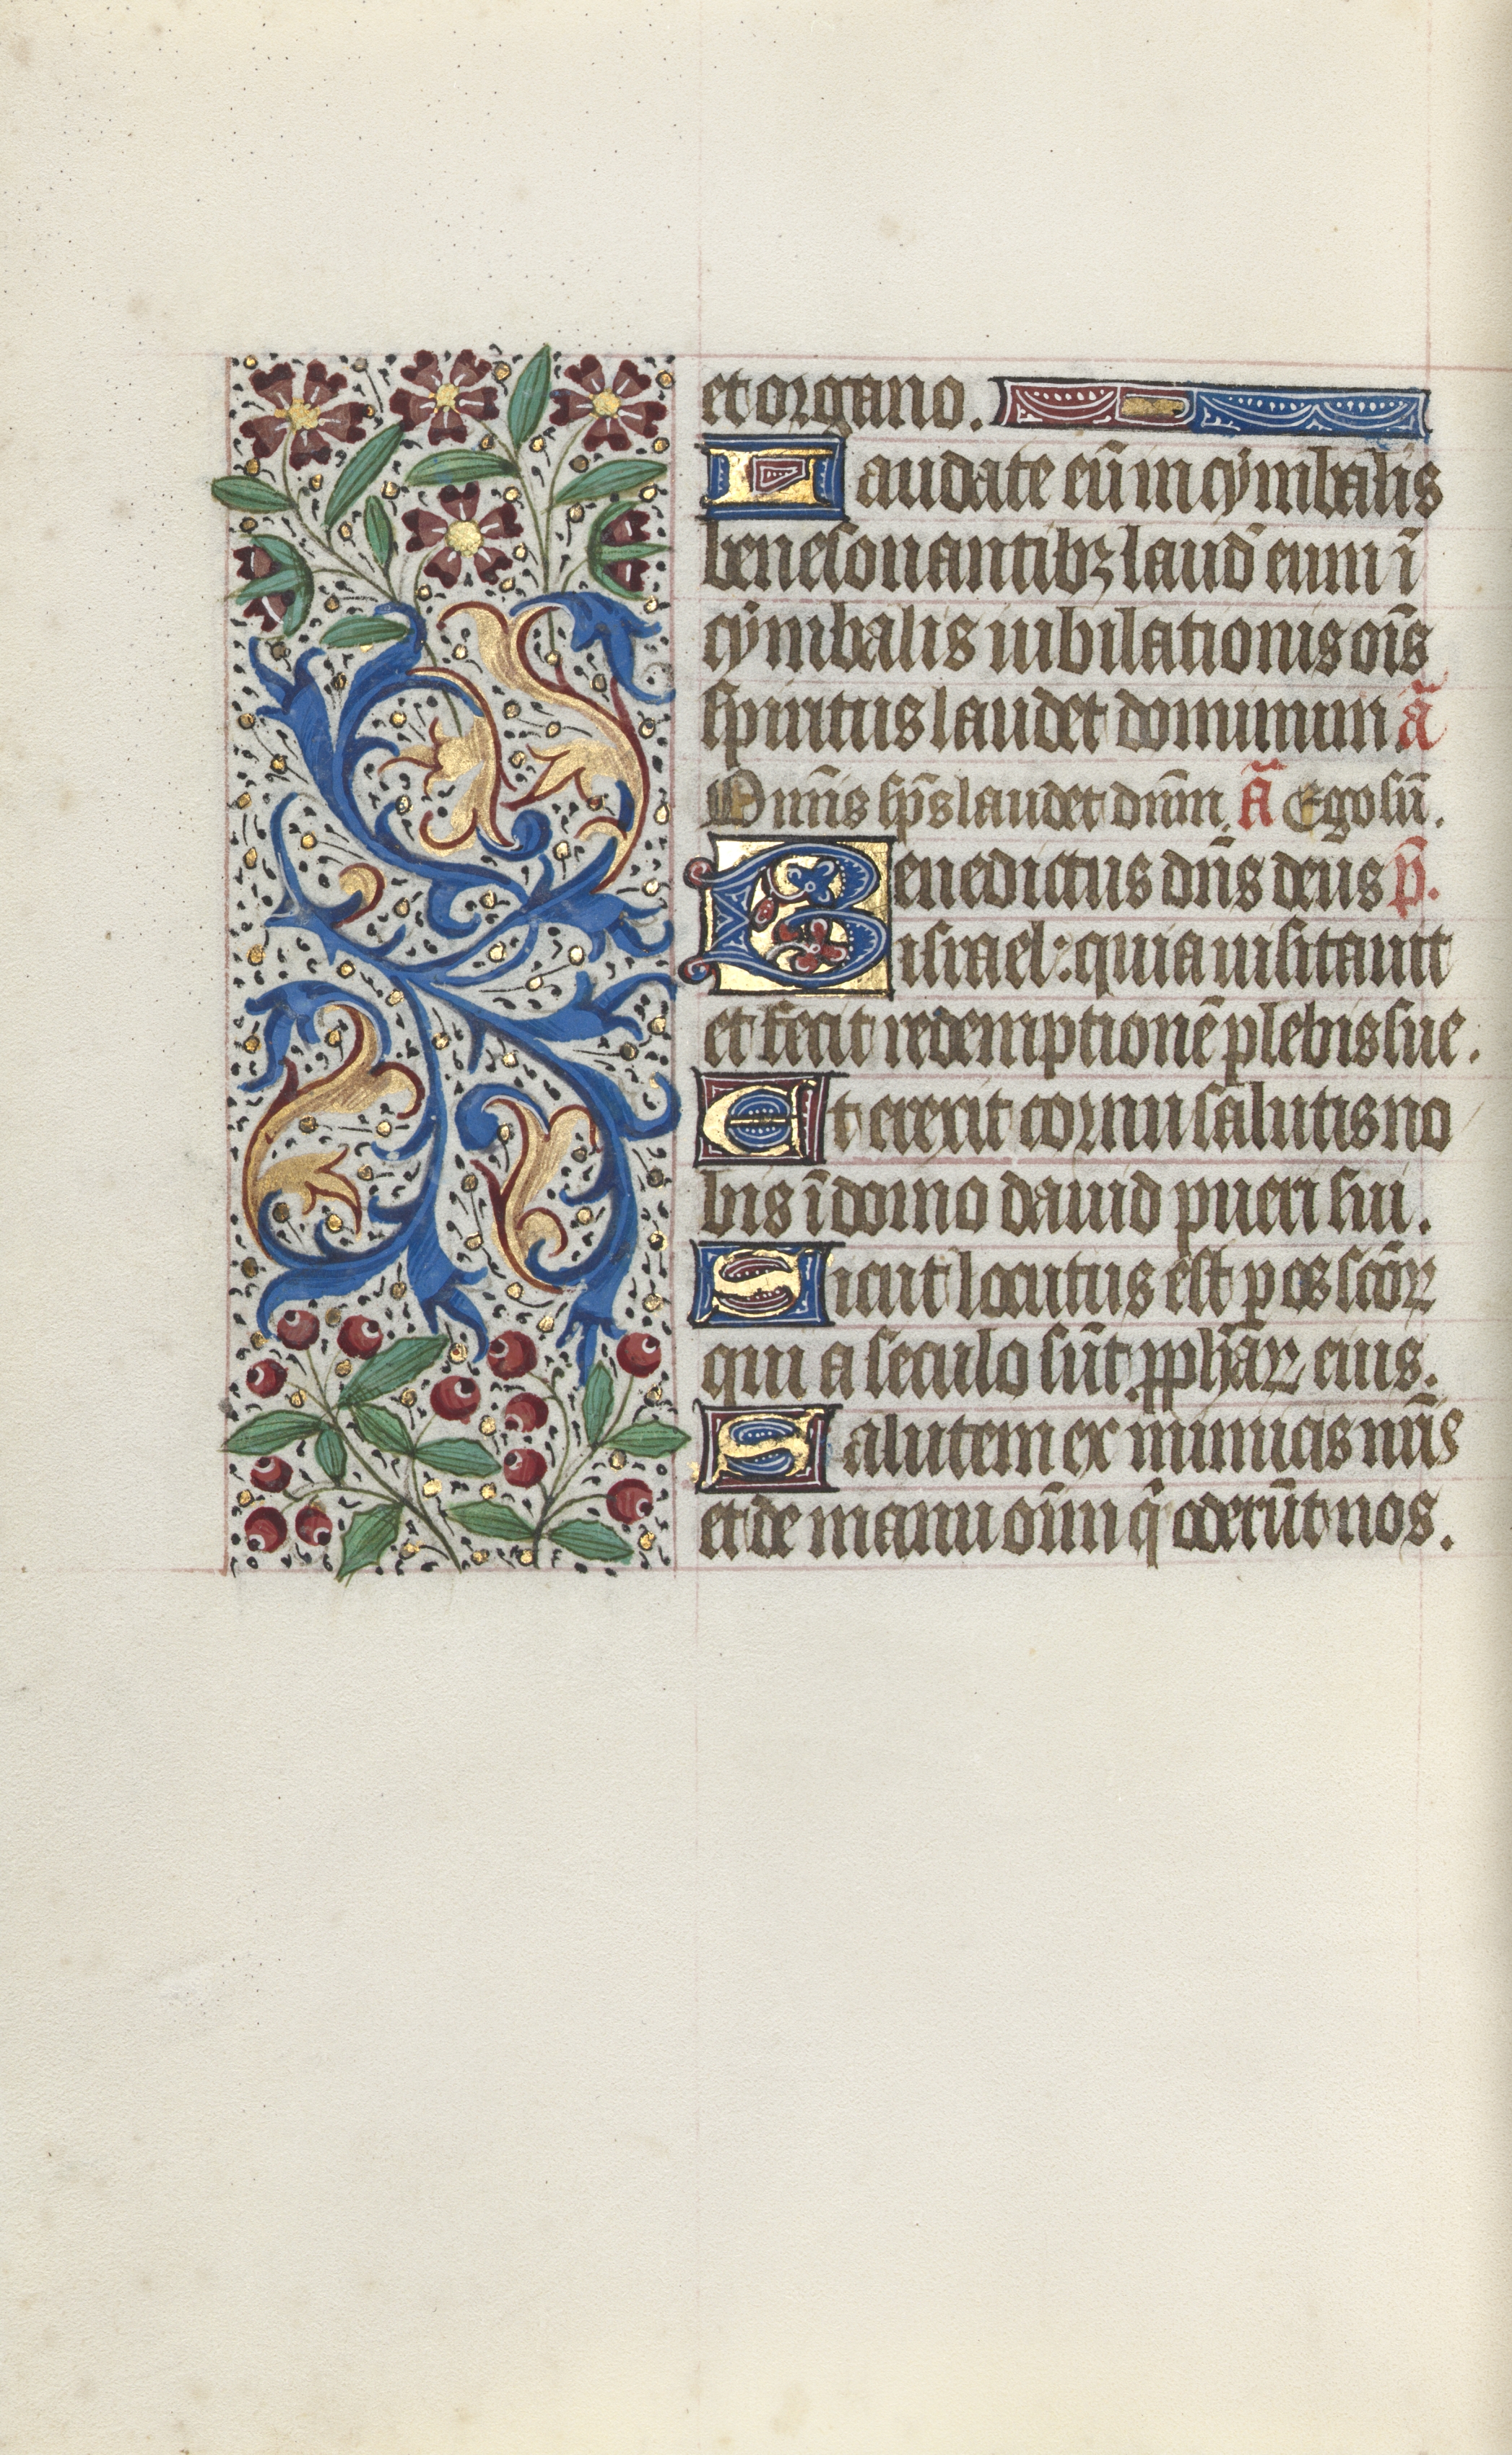 et organo.
Laudate eū in cymbalis
benesonantibꝫ laud̄ eum ī
cymbalis iubilationis oīs
spiritus laudet dominum ā
Om̄is sp̄s laudet dn̄m. ā Ego sū.
Benedictus dn̄s deus p̄.
israel: quia uisitauit
et fecit redemptionē plebis sue.
Et erexit cornu salutis no
bis ī domo dauid pueri sui.
Sicut locutus est p os sc̄oꝝ
qui a seculo sūt ꝓph̄aꝝ eius.
Salutem ex inimicis nr̄is
et de manu oīm q̄ oderūt nos.